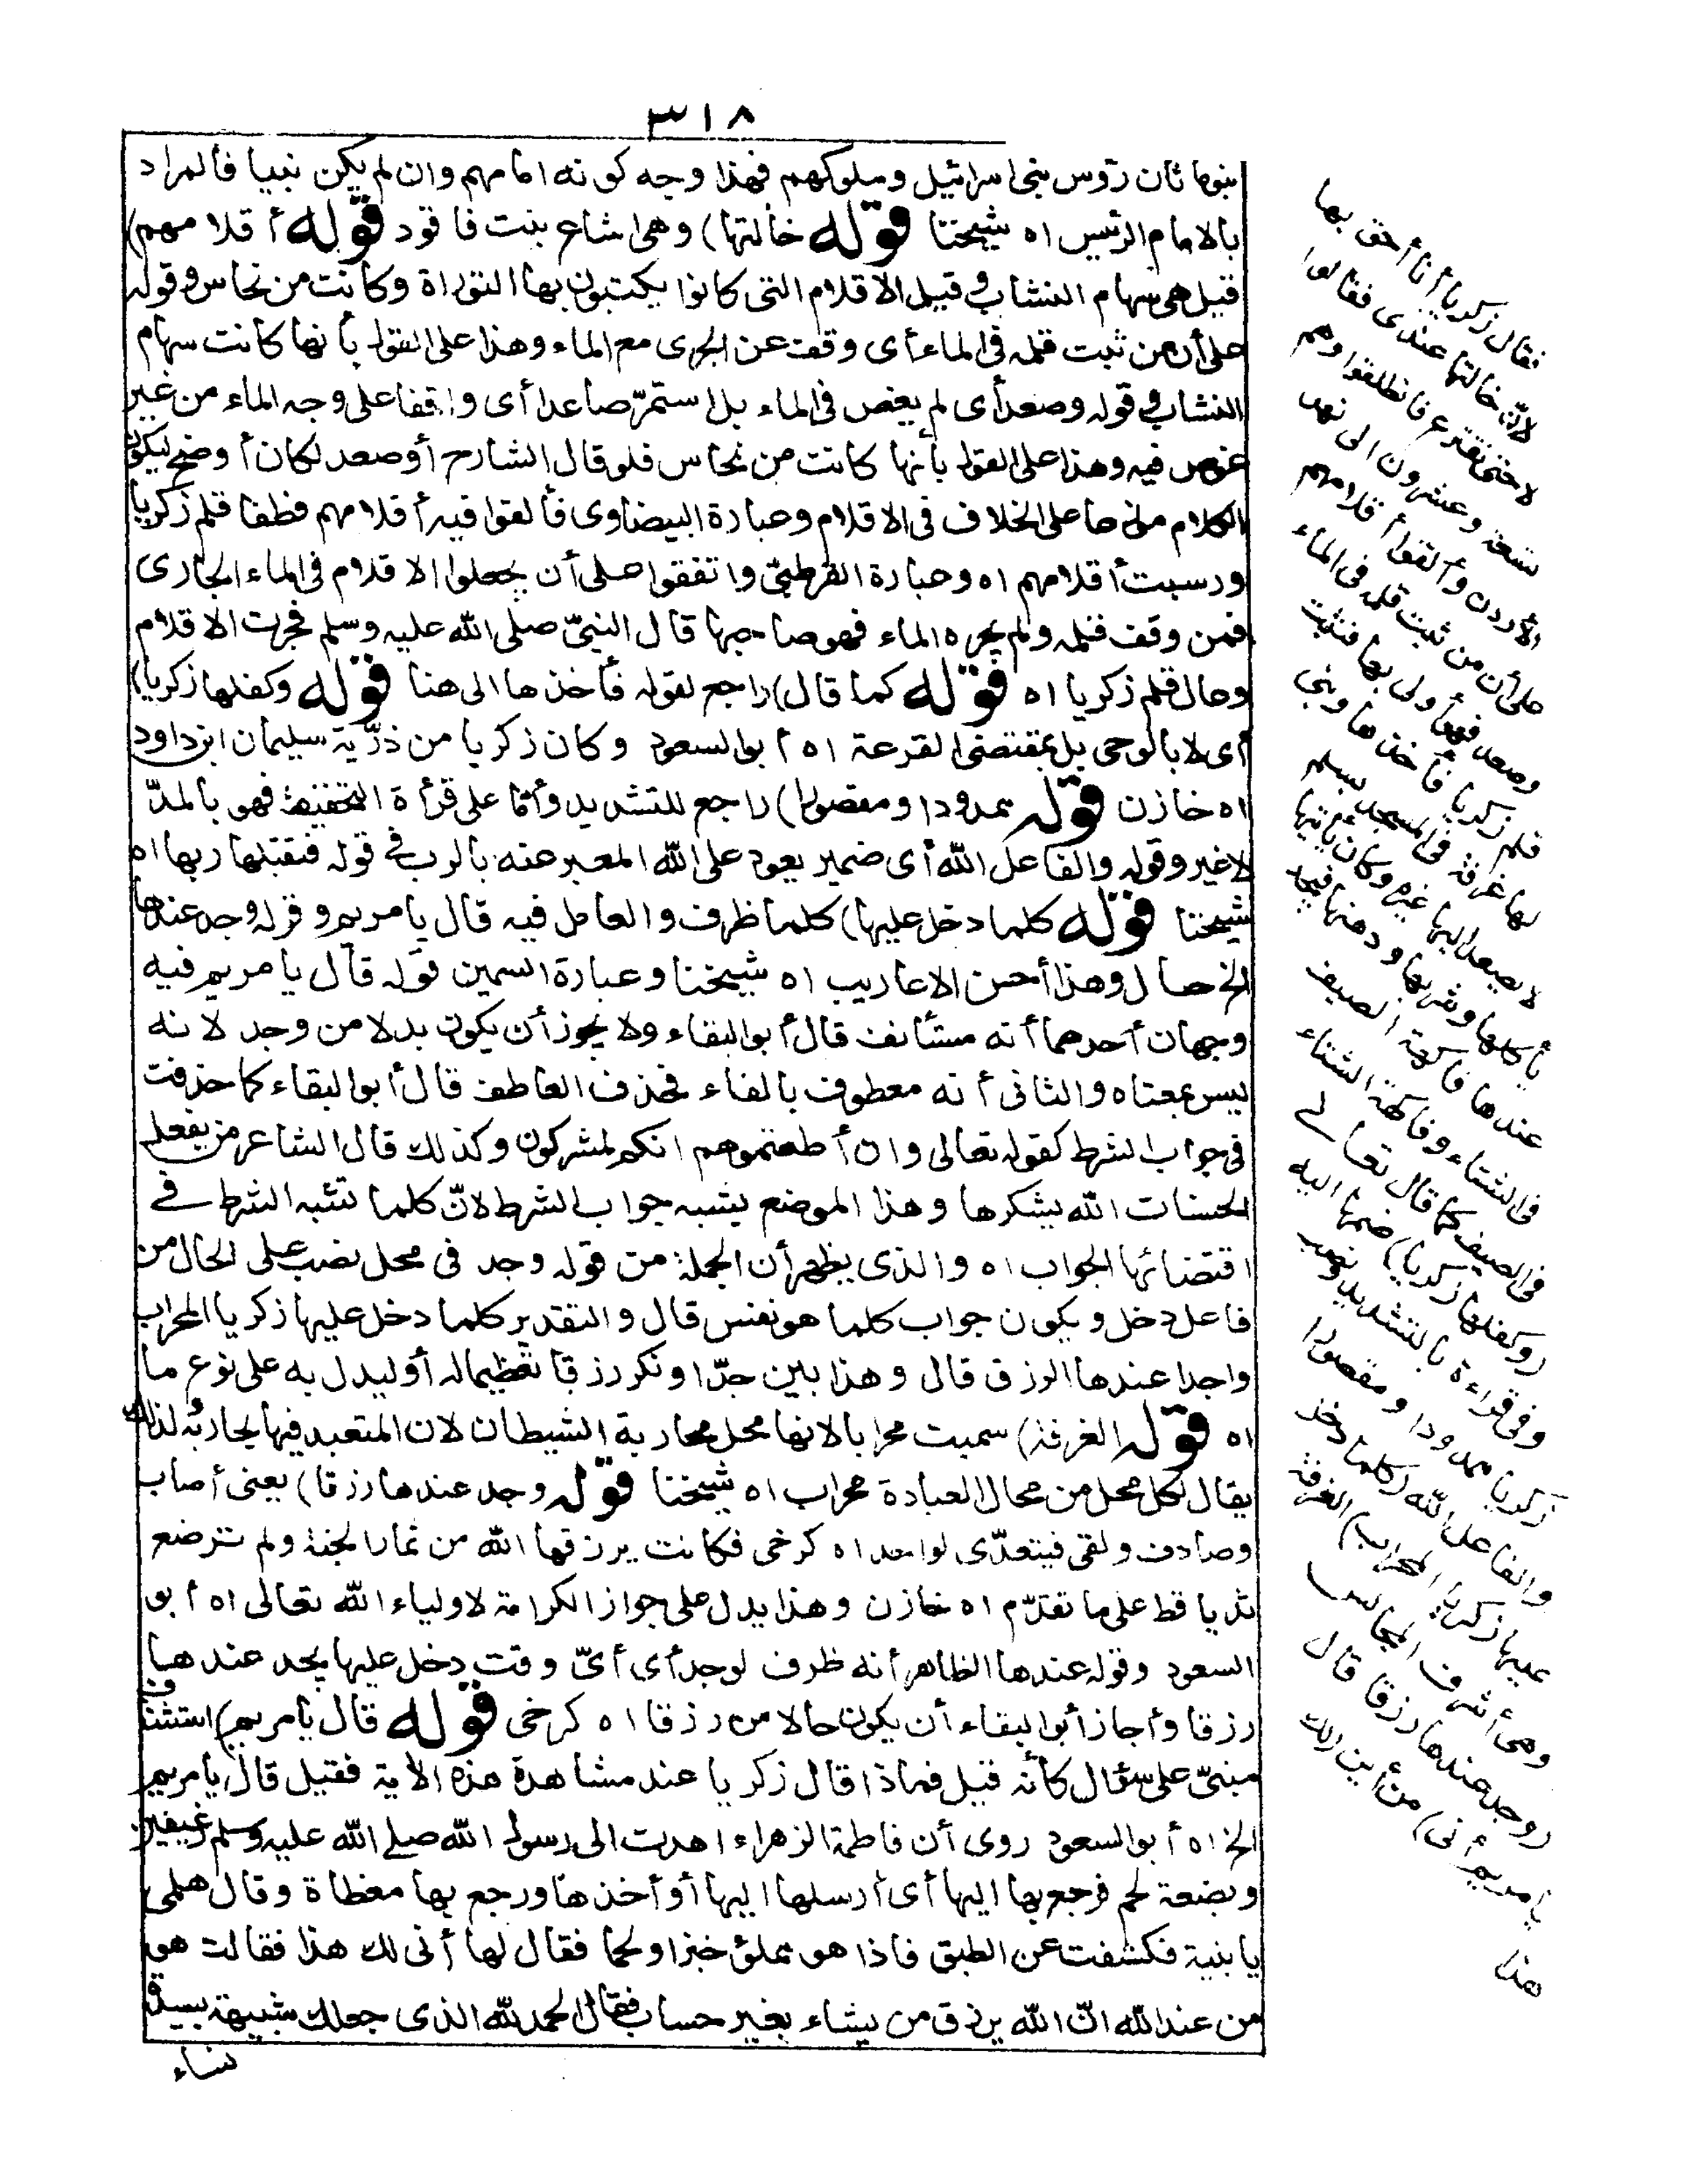 ٣١٨
بنوماثان رؤس بنى اسرائيل وملوكهم فهذا وجه كونه امامهم وان لم يكن نبيا فالمراد
بالامام الرئيس اه شيخنا قوله خالتها) وهى اشاع بنت فاقود قوله أقلامهم)
قيل هى سهام النشاب وقيل الاقلام التى كانوا يكتبون بها التوراة وكانت من نحاس وقوله
على أن من ثبت قلمه فى الماء أى وقف عن الجرى مع الماء وهذا على القول بأنها كانت سهام
النشاب وقوله وصعد أى لم يغص فى الماء بل استمرّ صاعدا أى واقفا على وجه الماء من غير
غوص فيه وهذا على القول بأنها كانت من نحاس فلو قال الشارح أو صعد لكان أوضح ليكون
الكلام موزعا على الخلاف فى الاقلام وعبارة البيضاوى فألقوا فيه أقلامهم فطفا قلم زكريا
ورسبت أقلامهم اه وعبارة القرطبىّ واتفقوا على أن يجعلوا الاقلام فى الماء الجارى
فمن وقف قلمه ولم يجره الماء فهو صاحبها قال النبىّ صلى الله عليه وسلم فجرت الاقلام
وعال قلم زكريا اه قوله كما قال) راجع لقوله فأخذها الى هنا قوله وكفلها زكريا)
أى لا بالوحى بل بمقتضى القرعة اه أبو السعود وكان زكريا من ذرّية سليمان ابن داود
اه خازن قوله ممدودا ومقصورا) راجع للتشديد وأما على قرأة التخفيف فهو بالمدّ
لا غير وقوله والفاعل الله أى ضمير يعود على الله المعبر عنه بالرب فى قوله فتقبلها ربها اه
شيخنا قوله كلما دخل عليها) كلما ظرف والعامل فيه قال يا مريم وقوله وجد عندها
الخ حال وهذا أحسن الاعاريب اه شيخنا وعبارة السمين قوله قال يا مريم فيه
وجهان أحدهما أنه مستأنف قال أبو البقاء ولا يجوز أن يكون بدلا من وجد لانه
ليس بمعناه والثانى أنه معطوف بالفاء فحذف العاطف قال أبو البقاء كما حذفت
فى جواب الشرط كقوله تعالى وان أطعتموهم انكم لمشركون وكذلك قال الشاعر من يفعل
الحسنات الله يشكرها وهذا الموضع يشبه جواب الشرط لانّ كلما تشبه الشرط فى
اقتضائها الجواب اه والذى يظهر أن الجملة من قوله وجد فى محل نصب على الحال من
فاعل دخل ويكون جواب كلما هو نفس قال والتقدير كلما دخل عليها زكريا المحراب
واجدا عندها الرزق قال وهذا بين جدّا ونكر رزقا تعظيما له أو ليدل به على نوع ما
اه قوله الغرفة) سميت محرابا لانها محل محاربة الشيطان لان المتعبد فيها يحاربه ولذلك
يقال لكل محل من محال العبادة محراب اه شيخنا قوله وجد عندها رزقا) يعنى أصاب
وصادف ولقى فيتعدّى لواحد اه كرخى فكانت يرزقها الله من ثمار الجنة ولم ترضع
ثديا قط على ما تقدّم اه خازن وهذا يدل على جواز الكرامة لاولياء الله تعالى اه أبو
السعود وقوله عندها الظاهر أنه ظرف لوجد أى أىّ وقت دخل عليها يجد عندها
رزقا وأجاز أبو البقاء أن يكون حالا من رزقا اه كرخى قوله قال يا مريم) استئناف
مبنىّ على سؤال كأنه قيل فماذا قال زكريا عند مشاهدة هذه الآية فقيل قال يا مريم
الخ اه أبو السعود روى أن فاطمة الزهراء اهدت الى رسول الله صلى الله عليه وسلم رغيفين
وبضعة لحم فرجع بها اليها أى أرسلها اليها أو أخذها ورجع بها مغطاة وقال هلمى
يا بنية فكشفت عن الطبق فاذا هو مملؤ خبزا ولحما فقال لها أنى لك هذا فقالت هو
من عند الله انّ الله يرزق من يشاء بغير حساب فقال الحمد لله الذى جعلك شبيهة بسيدة
نساء
فقال زكريا أنا أحق بها
لانّ خالتها عندى فقالوا
لا حتى نقترع فانطلقوا وهم
تسعة وعشرون الى نهر
الأردن وألقوا أقلامهم
على أن من ثبت قلمه فى الماء
وصعد فهو أولى بها فثبت
قلم زكريا فأخذها وبنى
لها غرفة فى المسجد بسلم
لا يصعد اليها غيره وكان يأتيها
بأكلها وشربها ودهنها فيجد
عندها فاكهة الصيف
فى الشتاء وفاكهة الشتاء
فى الصيف كما قال تعالى
(وكفلها زكريا) ضمها اليه
وفى قراءة بالتشديد ونصب
زكريا ممدودا ومقصورا
والفاعل الله (كلما دخل
عليها زكريا المحراب) الغرفة
وهى أشرف المجالس
(وجد عندها رزقا قال
يا مريم أنى) من أين (لك
هذا